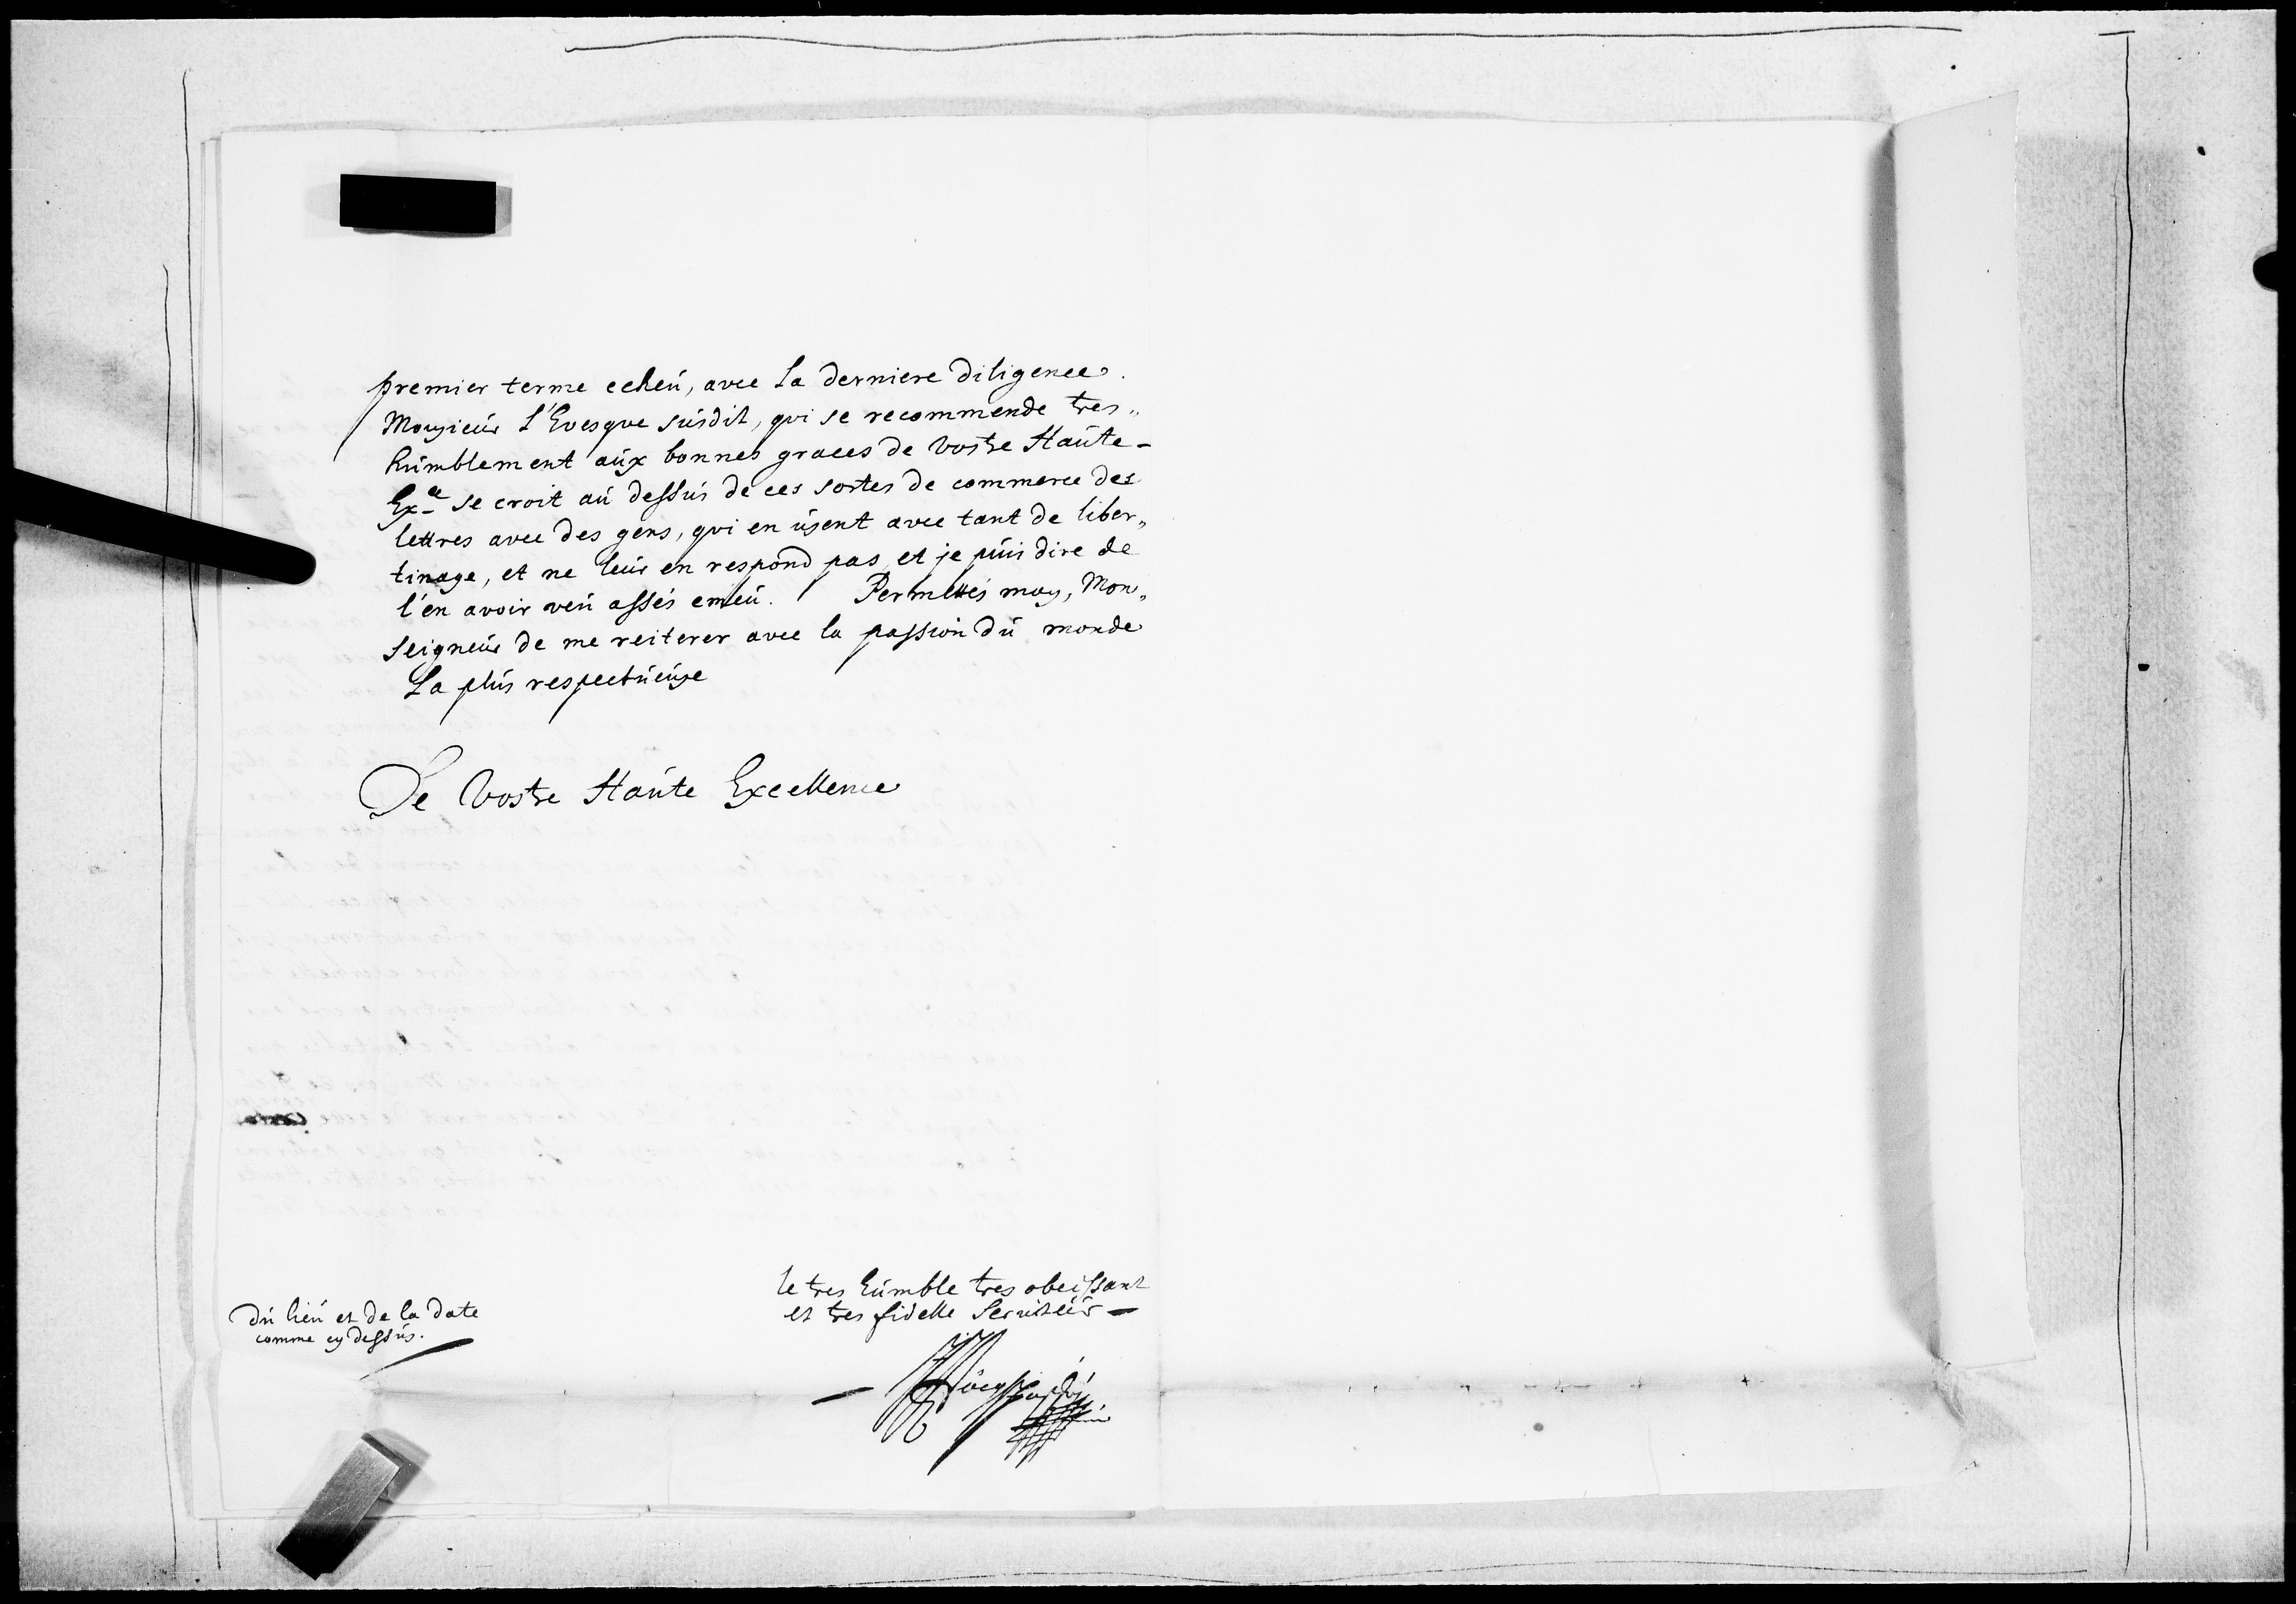 premier terme echeú, avec La derniere diligence.
Monsieúr L'Evesque súsdit, qui se recommende tres„
húmblement aúx bonnes graces de Vostre Haúte-
Ex.ce se croit aú dessús de ces sortes de commerce des
lettres avec des gens, qui en úsent avec tant de liber„
tinage, et ne leúr en respond pas, et je púis dire de
l'en avoir veú assés emeú. Permettés moy, Mon„
seigneúr de me reiterer avec la passion dú monde
La plús respectúeúse
De Vostre Haúte Excellence
le tres húmble tres obeissant
et tres fidelle Serviteúr
Dú lieú et de la date
comme cy dessús.